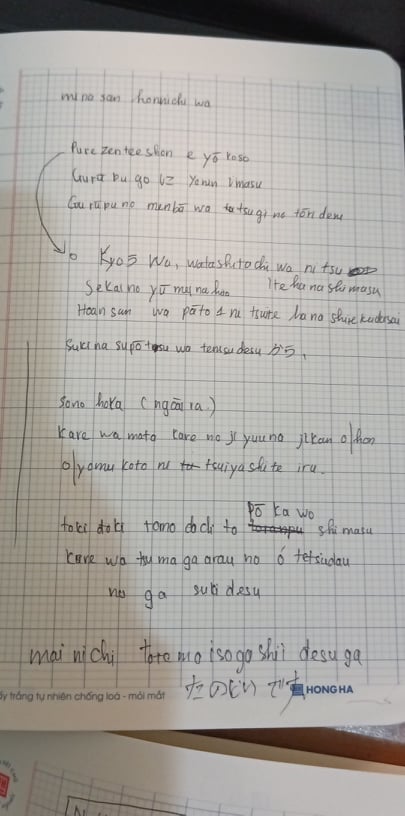 mina san honnichi wa
Purezenteeshon e yō koso
Gurū pu go ni Yonin imasu
Gu rūpu no menbā wa tsugi no tōri desu
Kyo う Wa, watashitachi wa ni tsu
Sekai no yū mei na hoo ite hanashimasu
Hoan san wa pāto 1 ni tsuite hanashite kudasai
Suki na supōtsu wa tenisu desu から,
Sono hoka (ngoài ra)
Kare wa mata kare no ji yuu na jikan o hon
o yomu koto ni tsuiyashite iru.
toki doki tomo dachi to pō ka wo shimasu
Kare wa tsu ma ga arau no ó tetsudau
no ga suki desu
mai nichi totemo isogashii desu ga
たのしい です
ấy trắng tự nhiên chống loá - mỏi mắt
HONG HA